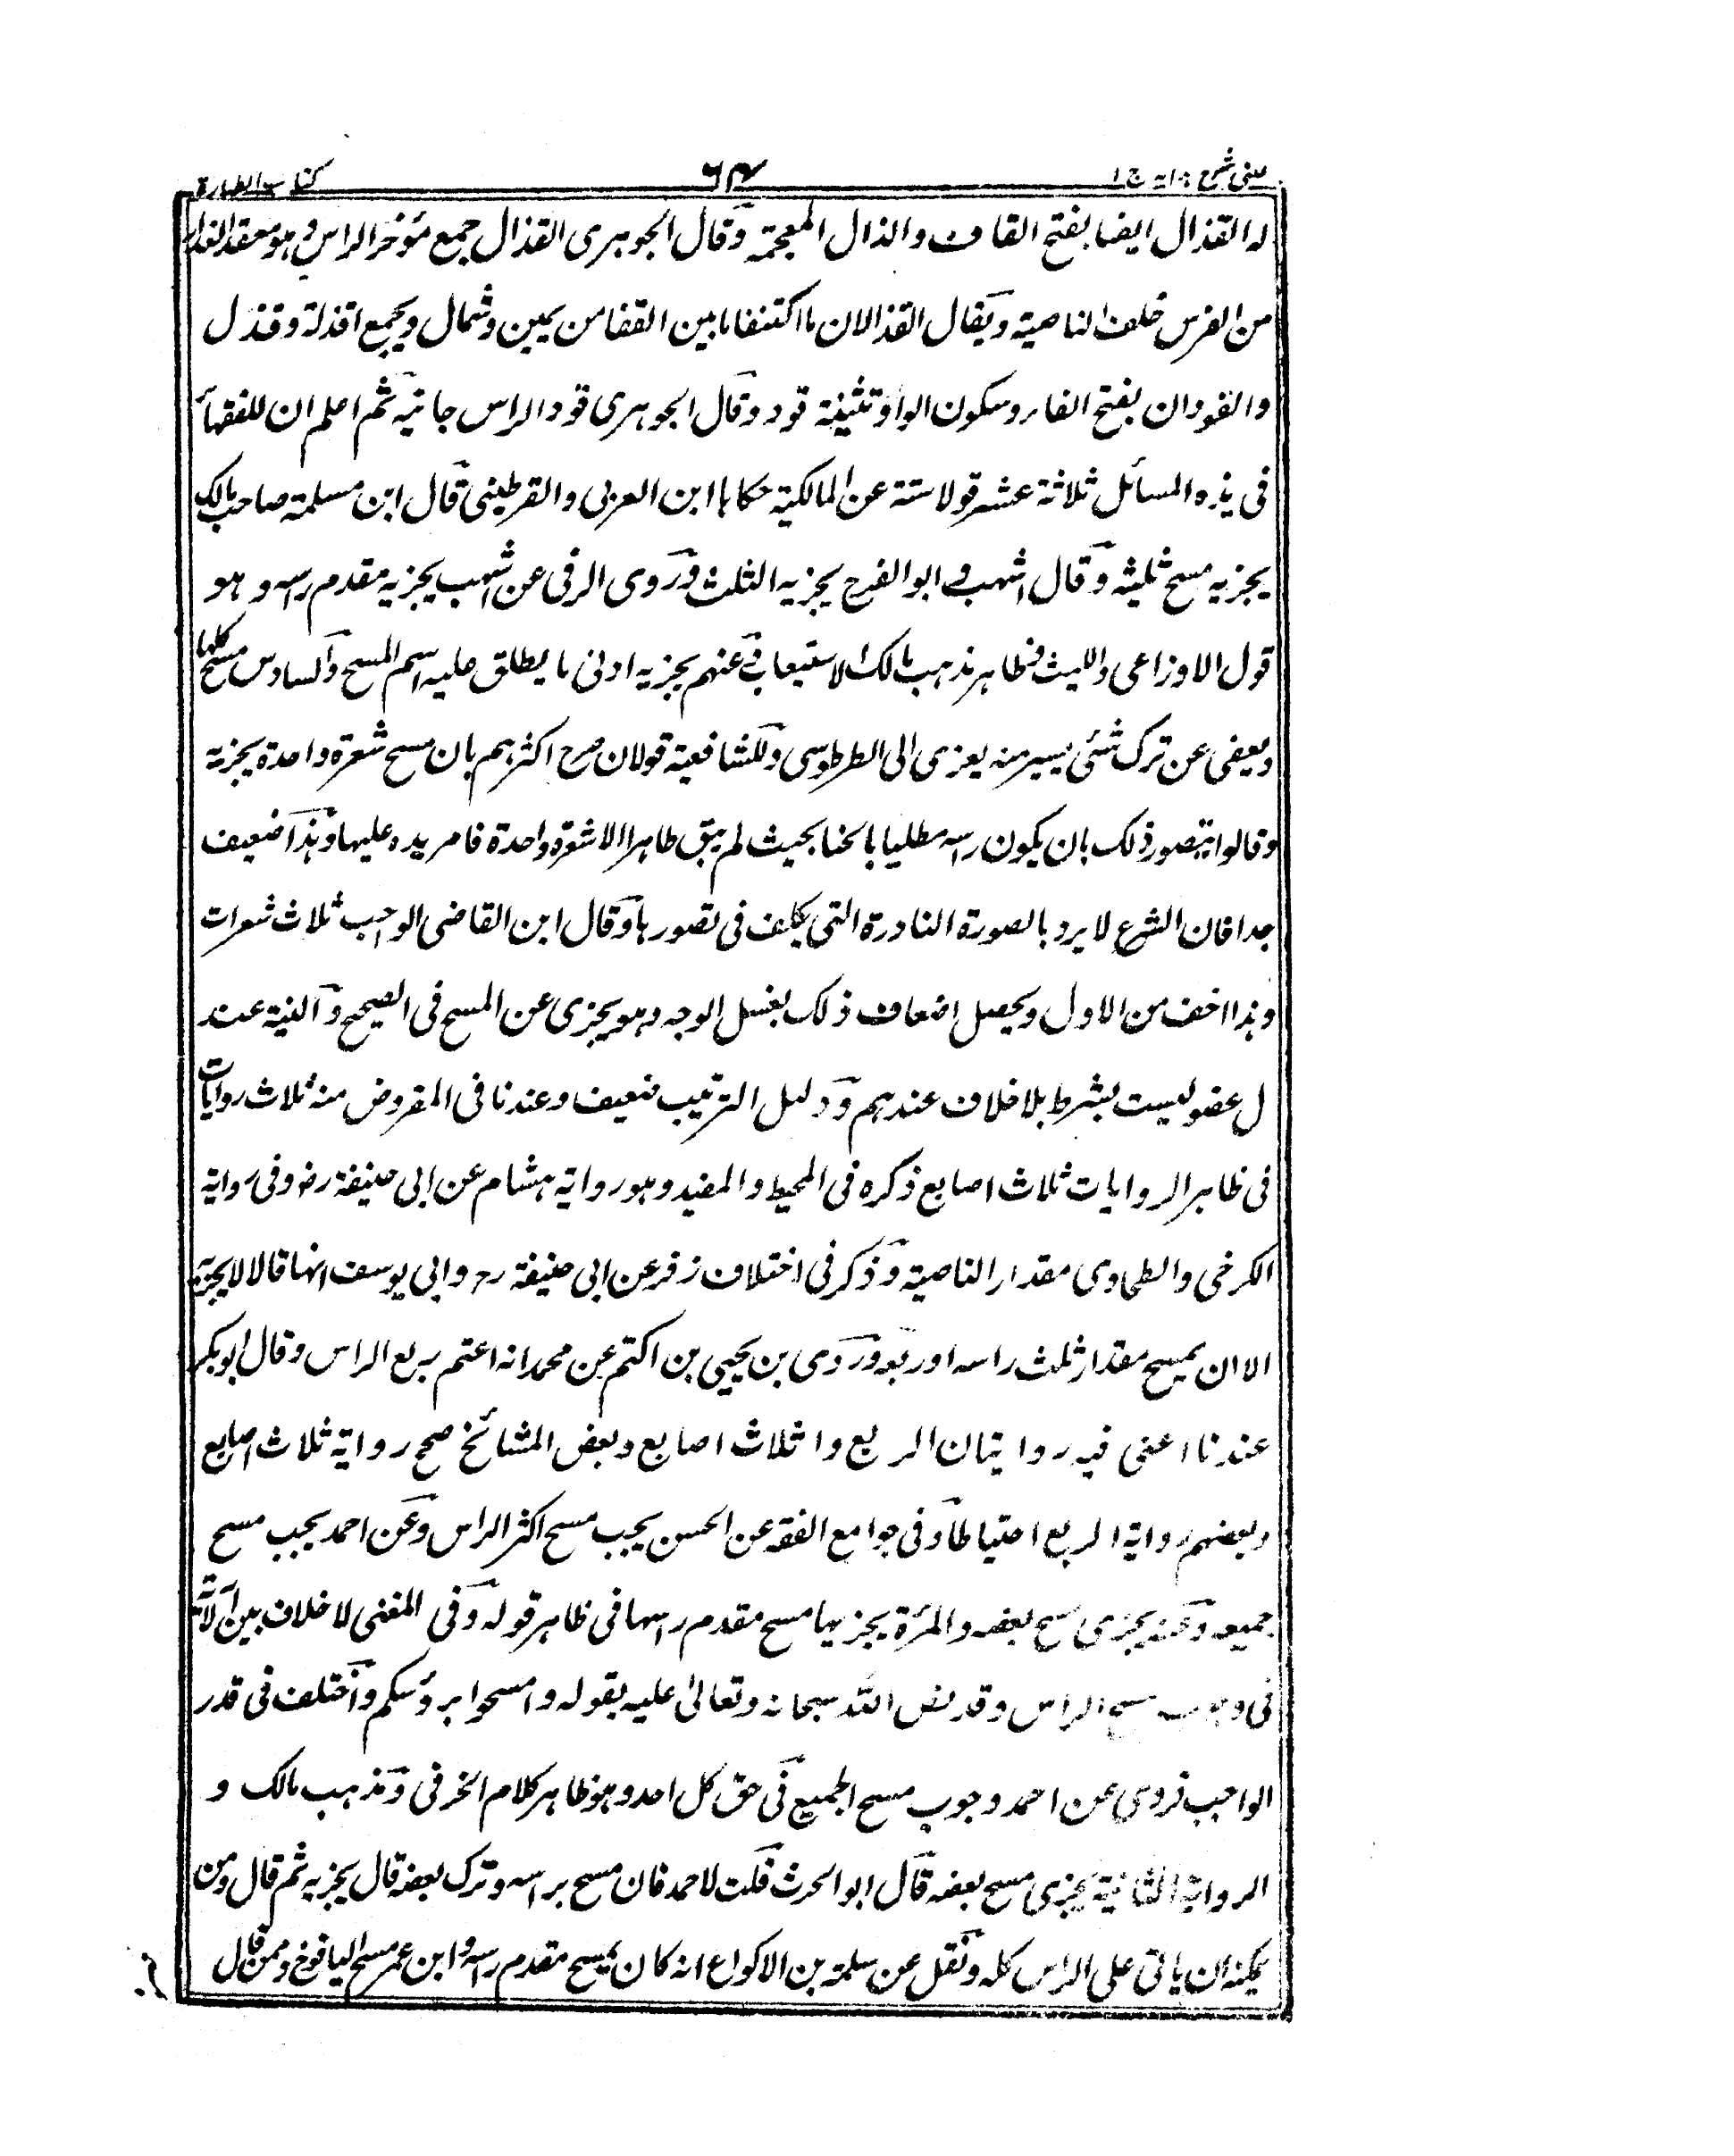 عینی شرح ہدایہ ج ۱
۶۴
کتاب الطہارة
له القذال ايضا بفتح القاف والذال المعجمة وقال الجوهرى القذال جمع مؤخر الراس وهو معقد العذار
من الفرس خلف الناصية ويقال القذالان ما اكتنفا ما بين القفا من يمين وشمال ويجمع اقذلة وقذل
والفودان بفتح الفاء وسكون الواو تثنية فود وقال الجوهرى فود الراس جانبه ثم اعلم ان للفقهاء
فى هذه المسائل ثلاثة عشر قولا ستة عن المالكية حكاها ابن العربى والقرطبى قال ابن مسلمة صاحب مالك
يجزيه مسح ثلثيه وقال اشهب وابو الفرج يجزيه الثلث وروى البرقى عن اشهب يجزيه مقدم راسه وهو
قول الاوزاعى والليث وظاهر مذهب مالك الاستيعاب وعنهم يجزيه ادنى ما يطلق عليه اسم المسح والسادس مسح كلها
ويعفى عن ترك شئى يسير منه يعزى الى الطرطوسى وللشافعية قولان صرح اكثرهم بان مسح شعرة واحدة يجزيه
وقالوا يتصور ذلك بان يكون راسه مطليا بالحنا بحيث لم يبق ظاهرا الا شعرة واحدة فامر يده عليها وهذا ضعيف
جدا فان الشرع لا يرد بالصورة النادرة التى يكلف فى تصورها وقال ابن القاضى الواجب ثلاث شعرات
وهذا اخف من الاول ويحصل اضعاف ذلك بغسل الوجه وهو يجزى عن المسح فى الصحيح والنية عند
ل عضو ليست بشرط بلا خلاف عندهم ودليل الترتيب ضعيف وعندنا فى المفروض منه ثلاث روايات
فى ظاهر الروايات ثلاث اصابع ذكره فى المحيط والمفيد وهو رواية هشام عن ابى حنيفة رض وفى رواية
الكرخى والطحاوى مقدار الناصية وذكر فى اختلاف زفر عن ابى حنيفة رح وابى يوسف انهما قالا لا يجزيه
الا ان يمسح مقدار ثلث راسه او ربعه وروى بن يحيى بن اكثم عن محمد انه اعتبر ربع الراس وقال ابو بكر
عندنا اعنى فيه روايتان الربع وا ثلاث اصابع وبعض المشائخ صحح رواية ثلاث اصابع
وبعضهم رواية الربع احتياطا وفى جوامع الفقه عن الحسن يجب مسح اكثر الراس وعن احمد يجب مسح
جميعه وعنه يجزى مسح بعضه والمرءة يجزيها مسح مقدم راسها فى ظاهر قوله وفى المغنى لا خلاف بين الائمة
فى وجوب مسح الراس وقد نص الله سبحانه وتعالى عليه بقوله وامسحوا برؤسكم واختلف فى قدر
الواجب فروى عن احمد وجوب مسح الجميع فى حق كل احد وهو ظاهر كلام الخرقى ومذهب مالك و
الرواية الثانية يجزى مسح بعضه قال ابو الحرث قلت لاحمد فان مسح براسه وترك بعضه قال يجزيه ثم قال ومن
يمكنه ان ياتى على الراس كله ونقل عن سلمة بن الاكواع انه كان يمسح مقدم راسه وابن عمر مسح اليافوخ وممن قال